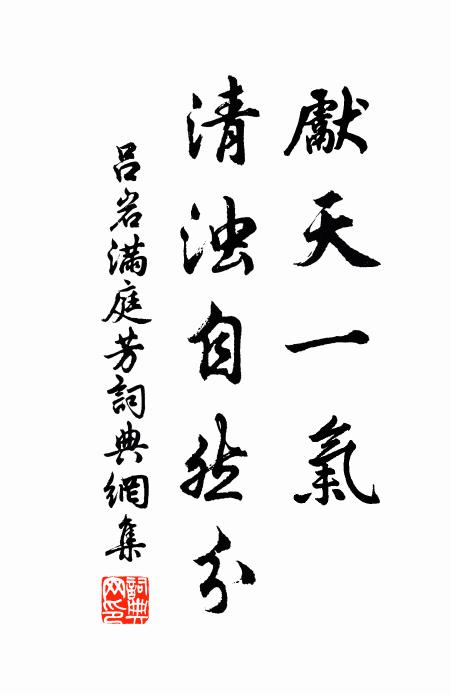 獻天一氣
清浊自然分
吕岩滿庭芳詞典網集
詞典网印